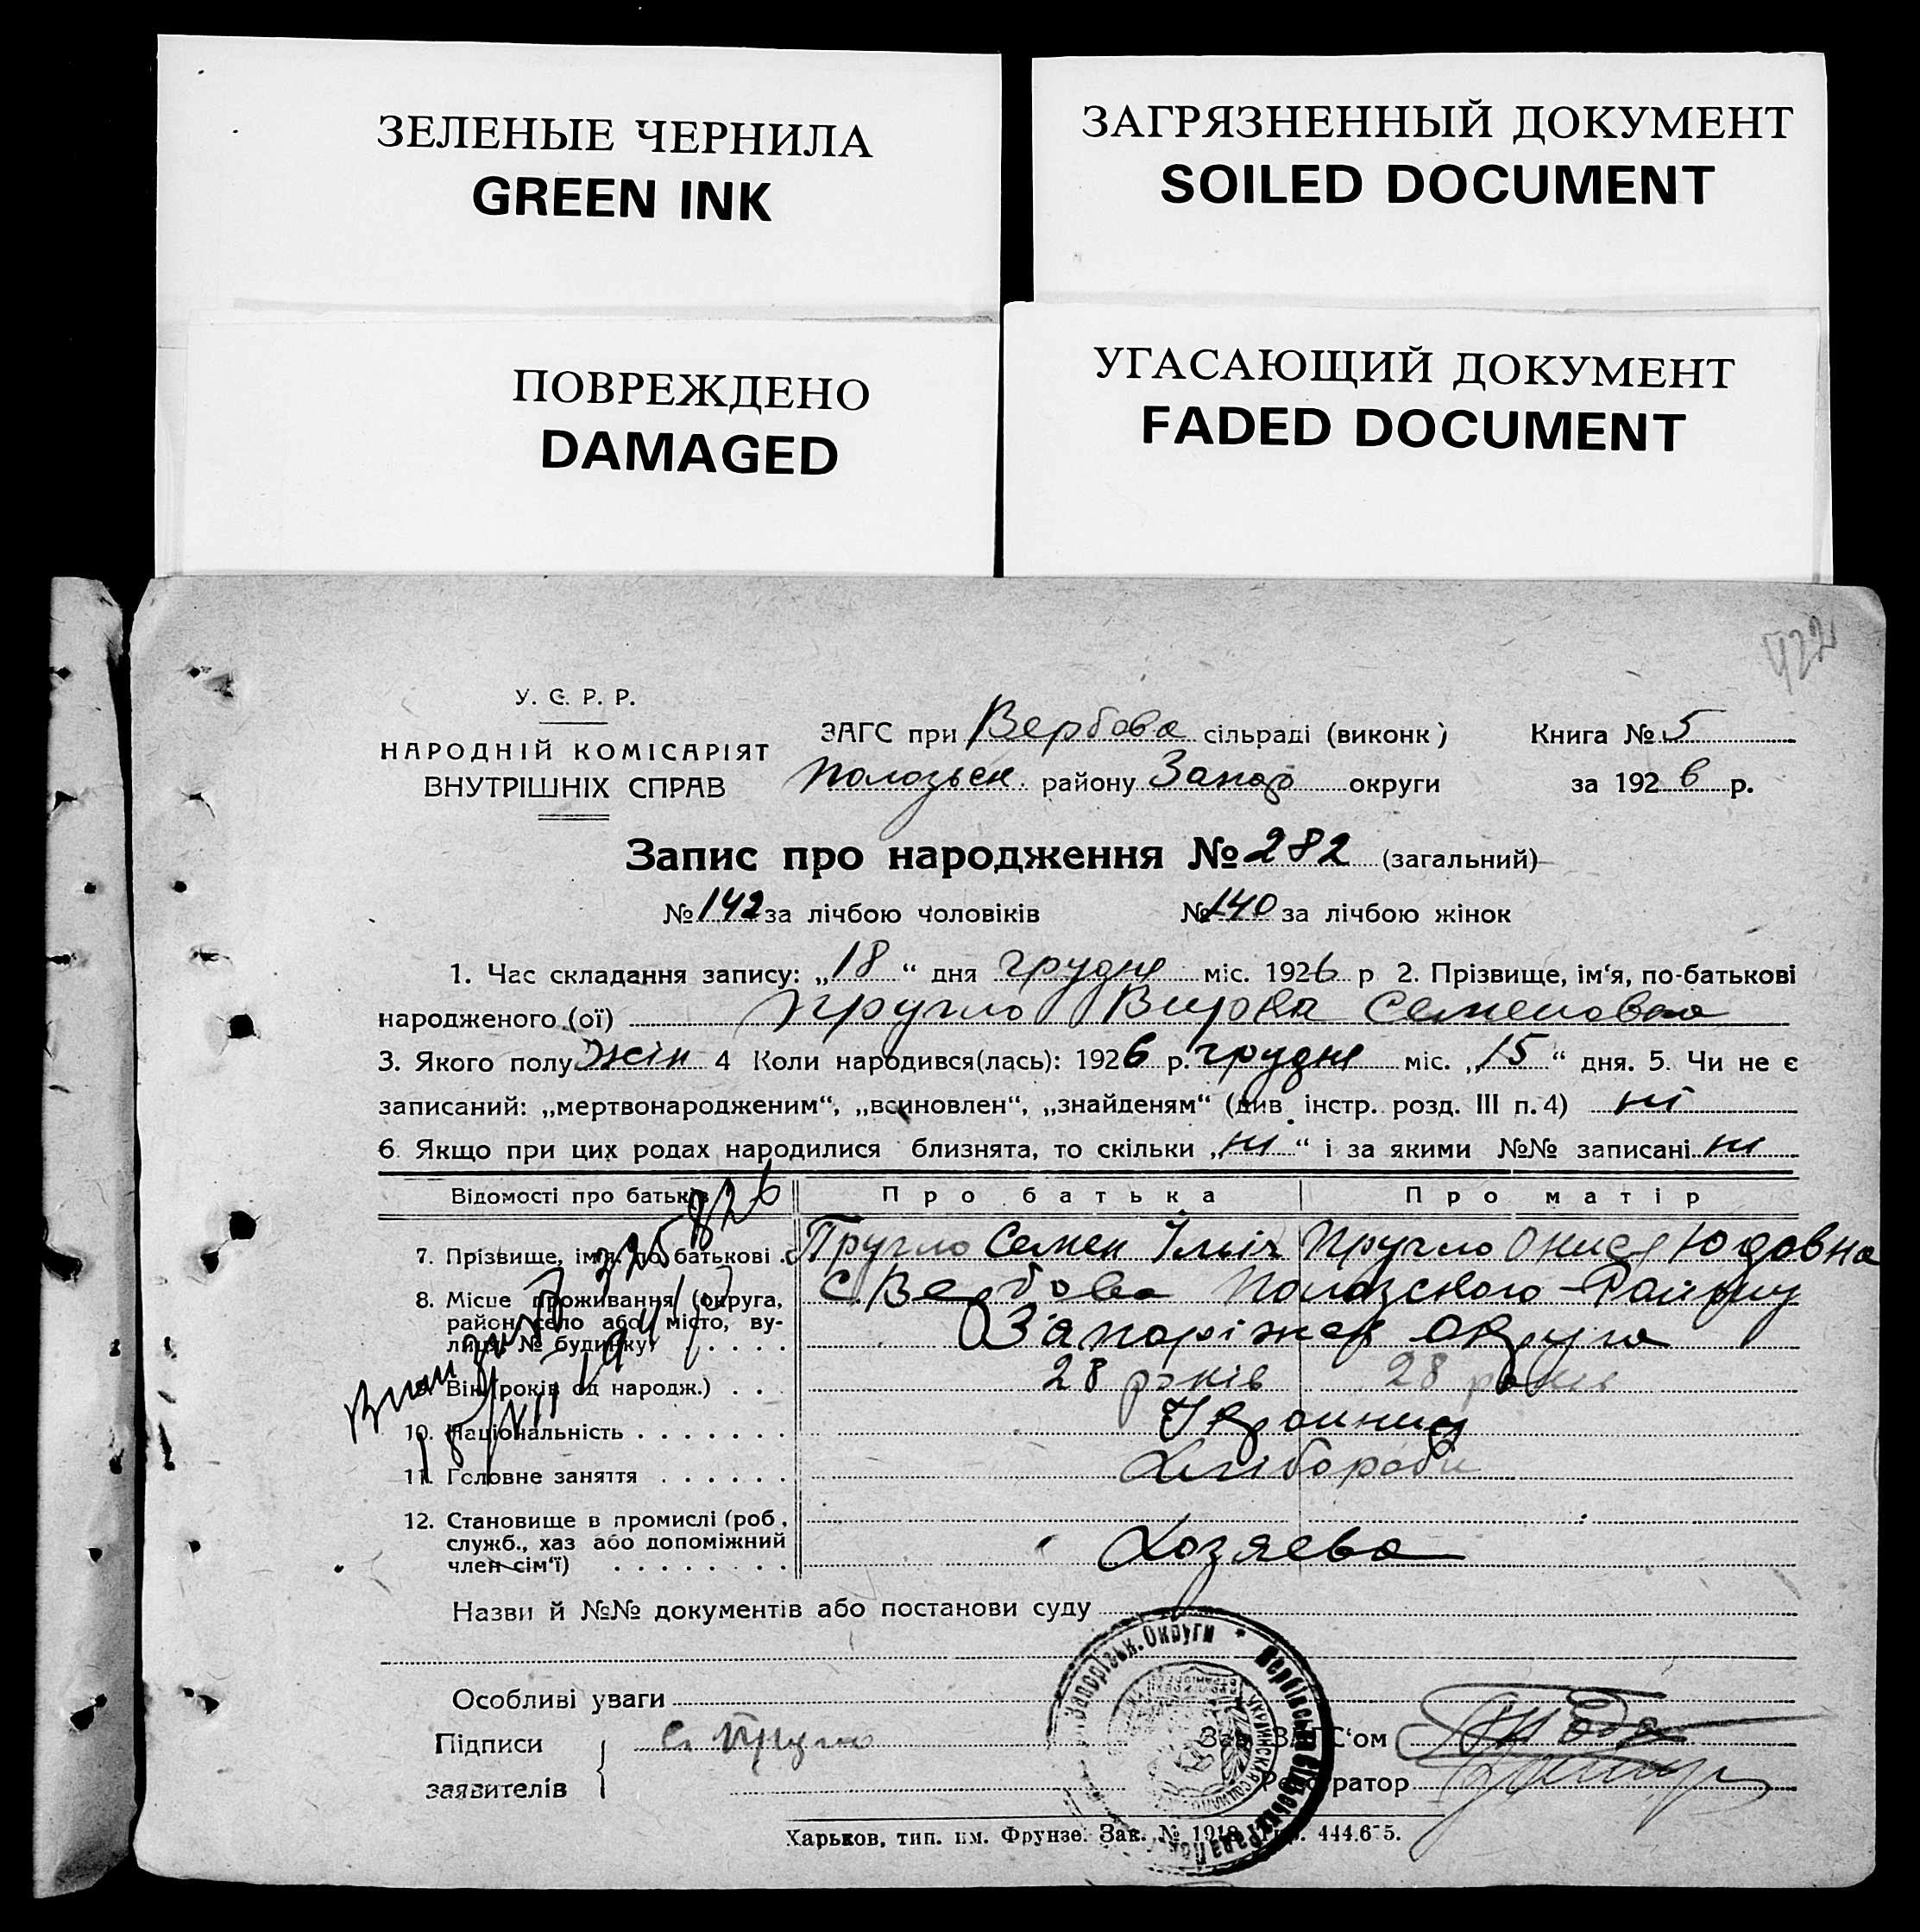 ЗЕЛЕНЫЕ ЧЕРНИЛА
GREEN INK
ЗАГРЯЗНЕННЫЙ ДОКУМЕНТ
SOILED DOCUMENT
ПОВРЕЖДЕНО
DAMAGED
УГАСАЮЩИЙ ДОКУМЕНТ
FADED DOCUMENT
422
У. С. Р. Р.
НАРОДНІЙ КОМІСАРІЯТ
ВНУТРІШНІХ СПРАВ
ЗАГС при Вербова сільраді (виконк)
Пологівск. району Запор округи
Книга № 5
за 1926 р.
Запис про народження № 282 (загальний)
№ 142 за лічбою чоловіків № 140 за лічбою жінок
1. Час складання запису: „18“ дня грудне міс. 1926 р 2. Прізвище, ім‘я, по-батькові
народженого (ої) Пругло Вирка Семеновна
3. Якого полу жін 4 Коли народився(лась): 1926 р. грудне міс. „15“ дня. 5. Чи не є
записаний: „мертвонародженим“, „всиновлен“, „знайденям“ (див. інстр. розд. III п. 4) ні
6. Якщо при цих родах народилися близнята, то скільки „ні“ і за якими №№ записані ні
Відомості про батьків Про батька Про матір
7. Прізвище, ім‘я, по батькові . Пругло Семен Ілліч Пругло Онися Юдовна
8. Місце проживання (округа, с. Вербова Полозского Району
район село або місто, ву-
лиця, № будинку) . . . . Запоріжск округа
9. Вік (років од народж.) . . . 28 років 28 років
10. Національність . . . . . . . Українци
11. Головне заняття . . . . . . Хлібороби
12. Становище в промислі (роб.,
служб., хаз або допоміжний
член сім‘ї) . . . . . . . . Хозяева
Назви й №№ документів або постанови суду
Особливі уваги
Підписи С. Пругло Зав. ЗАГС‘ом
заявителів Реєстратор
Запорізьк. Округи * Вербівська Сільська Рада
Харьков, тип. им. Фрунзе. Зак. № 1910